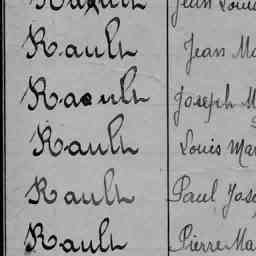 Jean Louis
Rault Jean Ma
Raoult Joseph M
Rault Louis Mar
Rault Paul Jose
Rault Pierre Ma